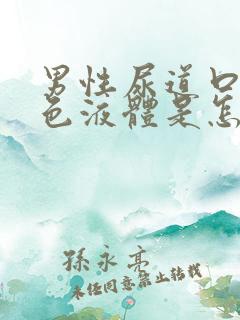 男性尿道口
色液體是怎
孫永亮
未經同意禁止轉載